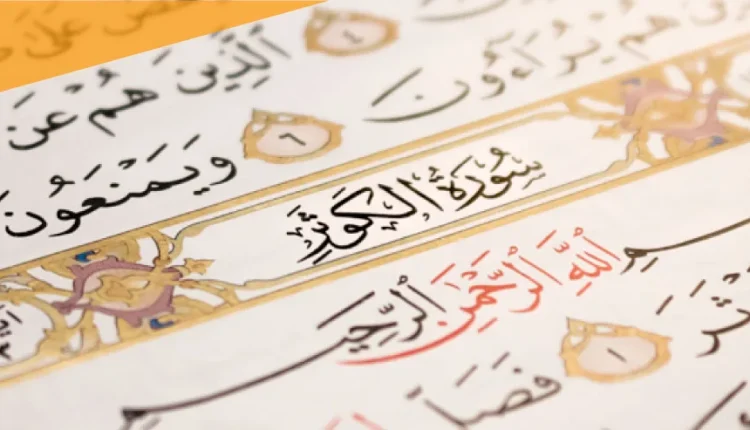 عَلَىٰ
٤ ٱلَّذِينَ هُمْ عَن
هُمْ يُرَآءُونَ ٦ وَيَمْنَعُونَ
سُورَةُ الكَوْثَرِ
ٱللَّهِ ٱلرَّحْمَٰنِ ٱلرَّحِيمِ
١